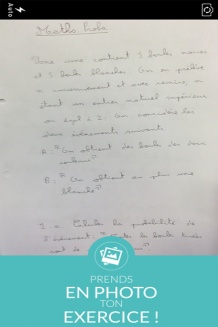 Auto
Maths proba
Une urne contient 5 boules noires
et 5 boules blanches. On en prélève
n successivement et avec remise, n
étant un entier naturel supérieur
ou égal à 2. On considère les
deux événements suivants
A : "On obtient des boules des deux
couleurs"
B : "On obtient au plus une
blanche"
1 : a Calculer la probabilité de
l'événement : "Toutes les boules tirées
sont de
PRENDS
EN PHOTO
TON
EXERCICE !